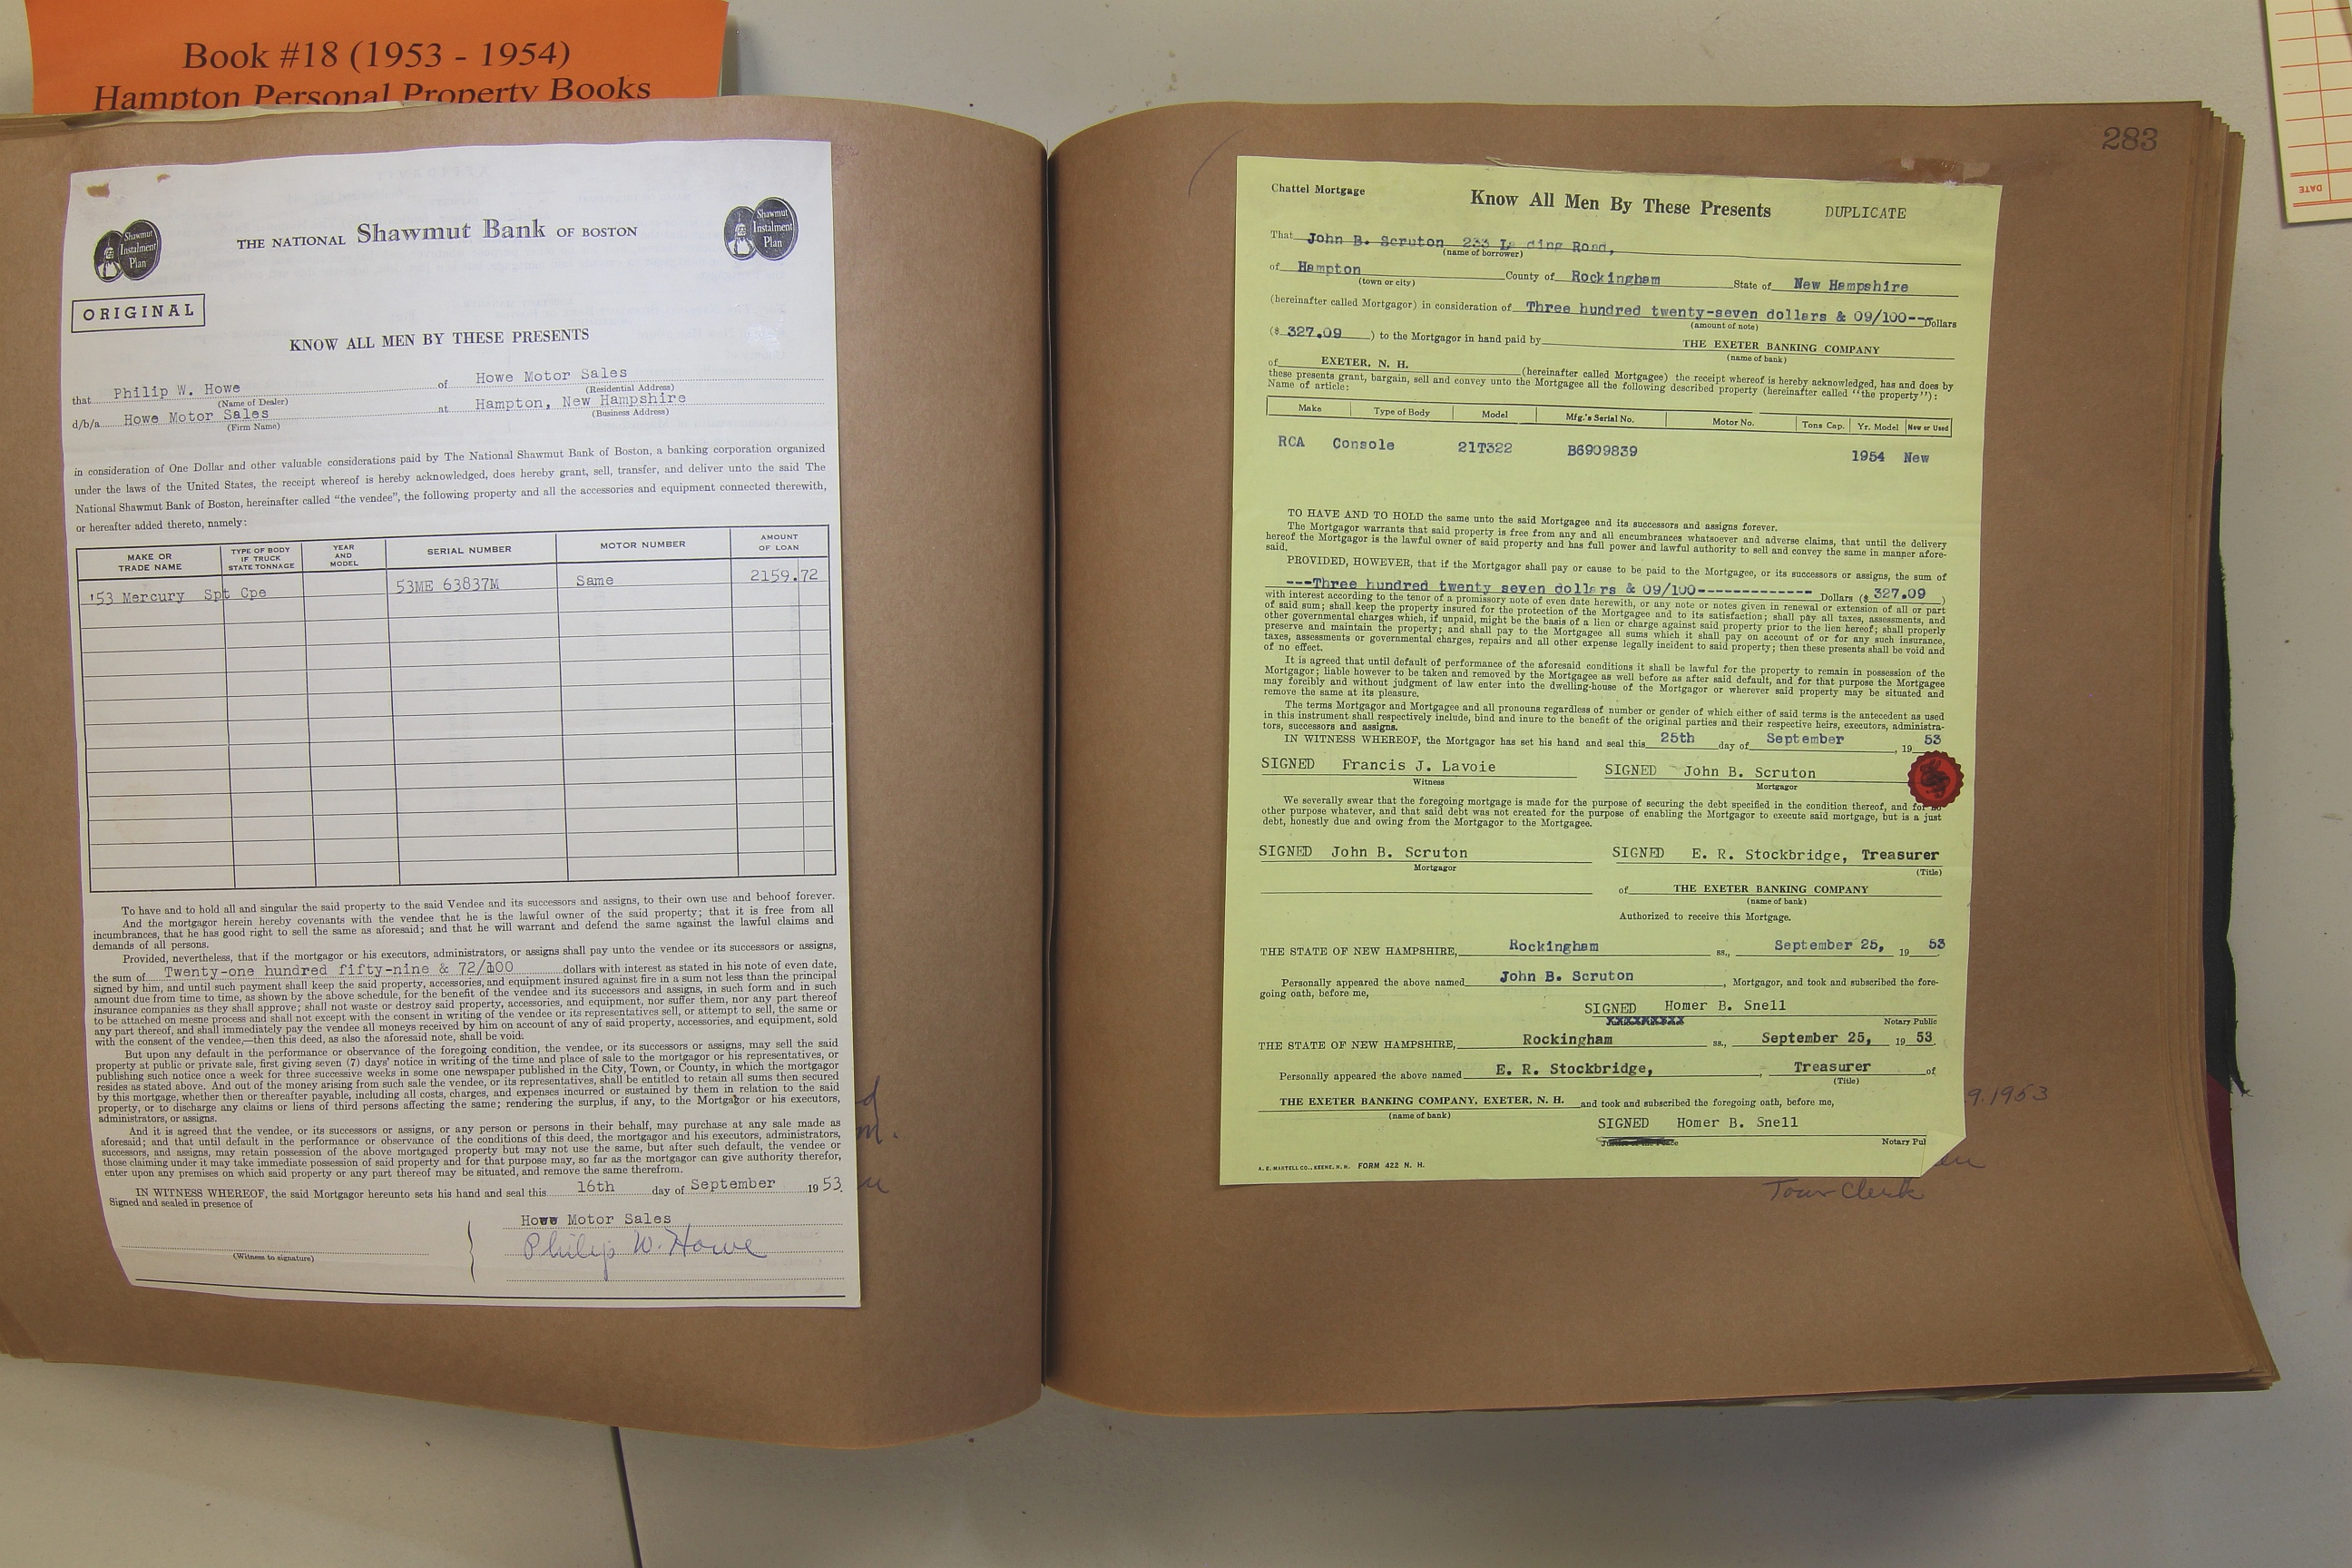 Book #18 (1953 - 1954)
Hampton Personal Property Books
Shawmut
Instalment
Plan
THE NATIONAL Shawmut Bank OF BOSTON
Shawmut
Instalment
Plan
ORIGINAL
KNOW ALL MEN BY THESE PRESENTS
that Philip W. Howe of Howe Motor Sales
(Name of Dealer) (Residential Address)
d/b/a Howe Motor Sales at Hampton, New Hampshire
(Firm Name) (Business Address)
in consideration of One Dollar and other valuable considerations paid by The National Shawmut Bank of Boston, a banking corporation organized
under the laws of the United States, the receipt whereof is hereby acknowledged, does hereby grant, sell, transfer, and deliver unto the said The
National Shawmut Bank of Boston, hereinafter called "the vendee", the following property and all the accessories and equipment connected therewith,
or hereafter added thereto, namely:
MAKE OR TRADE NAME TYPE OF BODY IF TRUCK STATE TONNAGE YEAR AND MODEL SERIAL NUMBER MOTOR NUMBER AMOUNT OF LOAN
'53 Mercury Spt Cpe 53ME 63837M Same 2159.72
To have and to hold all and singular the said property to the said Vendee and its successors and assigns, to their own use and behoof forever.
And the mortgagor herein hereby covenants with the vendee that he is the lawful owner of the said property; that it is free from all
incumbrances, that he has good right to sell the same as aforesaid; and that he will warrant and defend the same against the lawful claims and
demands of all persons.
Provided, nevertheless, that if the mortgagor or his executors, administrators, or assigns shall pay unto the vendee or its successors or assigns,
the sum of Twenty-one hundred fifty-nine & 72/100 dollars with interest as stated in his note of even date,
signed by him, and until such payment shall keep the said property, accessories, and equipment insured against fire in a sum not less than the principal
amount due from time to time, as shown by the above schedule, for the benefit of the vendee and its successors and assigns, in such form and in such
insurance companies as they shall approve; shall not waste or destroy said property, accessories, and equipment, nor suffer them, nor any part thereof
to be attached on mesne process and shall not except with the consent in writing of the vendee or its representatives sell, or attempt to sell, the same or
any part thereof, and shall immediately pay the vendee all moneys received by him on account of any of said property, accessories, and equipment, sold
with the consent of the vendee,—then this deed, as also the aforesaid note, shall be void.
But upon any default in the performance or observance of the foregoing condition, the vendee, or its successors or assigns, may sell the said
property at public or private sale, first giving seven (7) days' notice in writing of the time and place of sale to the mortgagor or his representatives, or
publishing such notice once a week for three successive weeks in some one newspaper published in the City, Town, or County, in which the mortgagor
resides as stated above. And out of the money arising from such sale the vendee, or its representatives, shall be entitled to retain all sums then secured
by this mortgage, whether then or thereafter payable, including all costs, charges, and expenses incurred or sustained by them in relation to the said
property, or to discharge any claims or liens of third persons affecting the same; rendering the surplus, if any, to the Mortgagor or his executors,
administrators, or assigns.
And it is agreed that the vendee, or its successors or assigns, or any person or persons in their behalf, may purchase at any sale made as
aforesaid; and that until default in the performance or observance of the conditions of this deed, the mortgagor and his executors, administrators,
successors, and assigns, may retain possession of the above mortgaged property but may not use the same, but after such default, the vendee or
those claiming under it may take immediate possession of said property and for that purpose may, so far as the mortgagor can give authority therefor,
enter upon any premises on which said property or any part thereof may be situated, and remove the same therefrom.
IN WITNESS WHEREOF, the said Mortgagor hereunto sets his hand and seal this 16th day of September 1953.
Signed and sealed in presence of
Howe Motor Sales
Philip W. Howe
(Witness to signature)
283
Chattel Mortgage Know All Men By These Presents DUPLICATE
That John B. Scruton 233 Road,
(name of borrower)
of Hampton County of Rockingham State of New Hampshire
(town or city)
(hereinafter called Mortgagor) in consideration of Three hundred twenty-seven dollars & 09/100-- Dollars
(amount of note)
($ 327.09 ) to the Mortgagor in hand paid by THE EXETER BANKING COMPANY
(name of bank)
of EXETER, N. H. (hereinafter called Mortgagee) the receipt whereof is hereby acknowledged, has and does by
these presents grant, bargain, sell and convey unto the Mortgagee all the following described property (hereinafter called "the property"):
Name of article:
Make Type of Body Model Mfg.'s Serial No. Motor No. Tons Cap. Yr. Model New or Used
RCA Console 21T322 B6909839 1954 New
TO HAVE AND TO HOLD the same unto the said Mortgagee and its successors and assigns forever.
The Mortgagor warrants that said property is free from any and all encumbrances whatsoever and adverse claims, that until the delivery
hereof the Mortgagor is the lawful owner of said property and has full power and lawful authority to sell and convey the same in manner afore-
said.
PROVIDED, HOWEVER, that if the Mortgagor shall pay or cause to be paid to the Mortgagee, or its successors or assigns, the sum of
---Three hundred twenty seven dollars & 09/100------------- Dollars ($ 327.09 )
with interest according to the tenor of a promissory note of even date herewith, or any note or notes given in renewal or extension of all or part
of said sum; shall keep the property insured for the protection of the Mortgagee and to its satisfaction; shall pay all taxes, assessments, and
other governmental charges which, if unpaid, might be the basis of a lien or charge against said property prior to the lien hereof; shall properly
preserve and maintain the property; and shall pay to the Mortgagee all sums which it shall pay on account of or for any such insurance,
taxes, assessments or governmental charges, repairs and all other expense legally incident to said property; then these presents shall be void and
of no effect.
It is agreed that until default of performance of the aforesaid conditions it shall be lawful for the property to remain in possession of the
Mortgagor; liable however to be taken and removed by the Mortgagee as well before as after said default, and for that purpose the Mortgagee
may forcibly and without judgment of law enter into the dwelling-house of the Mortgagor or wherever said property may be situated and
remove the same at its pleasure.
The terms Mortgagor and Mortgagee and all pronouns regardless of number or gender of which either of said terms is the antecedent as used
in this instrument shall respectively include, bind and inure to the benefit of the original parties and their respective heirs, executors, administra-
tors, successors and assigns.
IN WITNESS WHEREOF, the Mortgagor has set his hand and seal this 25th day of September, 19 53
SIGNED Francis J. Lavoie SIGNED John B. Scruton
Witness Mortgagor
We severally swear that the foregoing mortgage is made for the purpose of securing the debt specified in the condition thereof, and for no
other purpose whatever, and that said debt was not created for the purpose of enabling the Mortgagor to execute said mortgage, but is a just
debt, honestly due and owing from the Mortgagor to the Mortgagee.
SIGNED John B. Scruton SIGNED E. R. Stockbridge, Treasurer
Mortgagor (Title)
of THE EXETER BANKING COMPANY
(name of bank)
Authorized to receive this Mortgage.
THE STATE OF NEW HAMPSHIRE, Rockingham ss., September 25, 19 53
Personally appeared the above named John B. Scruton, Mortgagor, and took and subscribed the fore-
going oath, before me,
SIGNED Homer B. Snell
Notary Public
THE STATE OF NEW HAMPSHIRE, Rockingham ss., September 25, 19 53
Personally appeared the above named E. R. Stockbridge, Treasurer of
(Title)
THE EXETER BANKING COMPANY, EXETER, N. H. and took and subscribed the foregoing oath, before me,
(name of bank)
SIGNED Homer B. Snell
Notary Pu
A. E. MARTELL CO., KEENE, N. H. FORM 422 N. H.
9.1953
Town Clerk
DATE